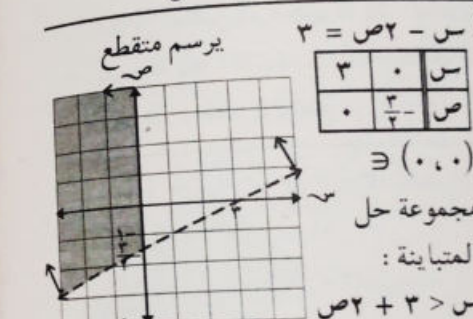 س − ٢ص = ٣
يرسم متقطع
س ٠ ٣
ص −٣/٢ ٠
(٠ ، ٠) ∈
مجموعة حل
المتباينة :
س < ٣ + ٢ص
ص
س
٣